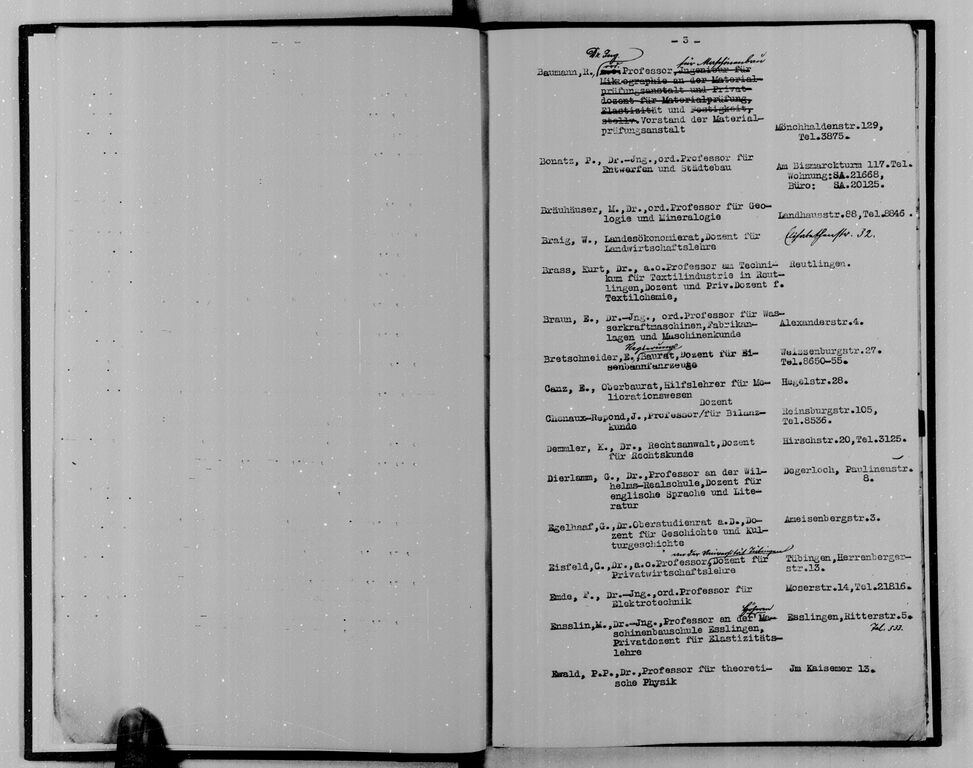 - 3 -
Dr. Ing.
für Maschinenbau
Baumann, R., Professor, Ingenieur für
Mikrographie an der Material-
prüfungsanstalt und Privat-
dozent für Materialprüfung,
Elastizität und Festigkeit,
stellv. Vorstand der Material-
prüfungsanstalt
Mönchhaldenstr.129,
Tel.3875.
Bonatz, P., Dr.-Jng.,ord.Professor für
Entwerfen und Städtebau
Am Bismarckturm 117.Tel.
Wohnung:SA.21668,
Büro: SA.20125.
Bräuhäuser, M.,Dr.,ord.Professor für Geo-
logie und Mineralogie
Landhausstr.88,Tel.8846.
Braig, W., Landesökonomierat,Dozent für
Landwirtschaftslehre
Elisabethenstr. 32.
Brass, Kurt, Dr., a.o.Professor am Techni-
kum für Textilindustrie in Reut-
lingen,Dozent und Priv.Dozent f.
Textilchemie,
Reutlingen.
Braun, E., Dr.-Jng., ord.Professor für Was-
serkraftmaschinen,Fabrikan-
lagen und Maschinenkunde
Alexanderstr.4.
Regierungs
Bretschneider,E.,Baurat,Dozent für Ei-
senbahnfahrzeuge
Weissenburgstr.27.
Tel.8650-55.
Canz, E., Oberbaurat,Hilfslehrer für Me-
liorationswesen
Hegelstr.28.
Dozent
Chenaux-Repond,J.,Professor/für Bilanz-
kunde
Reinsburgstr.105,
Tel.8536.
Demmler, K., Dr., Rechtsanwalt,Dozent
für Rechtskunde
Hirschstr.20,Tel.3125.
Dierlamm, G., Dr.,Professor an der Wil-
helms-Realschule,Dozent für
englische Sprache und Lite-
ratur
Degerloch, Paulinenstr.
8.
Egelhaaf,G.,Dr.Oberstudienrat a.D.,Do-
zent für Geschichte und Kul-
turgeschichte
Ameisenbergstr.3.
an der Universität Tübingen
Eisfeld,C.,Dr.,a.o.Professor,Dozent für
Privatwirtschaftslehre
Tübingen,Herrenberger-
str.13.
Emde, F., Dr.-Jng.,ord.Professor für
Elektrotechnik
Moserstr.14,Tel.21816.
höheren
Ensslin,M.,Dr.-Jng.,Professor an der Ma-
schinenbauschule Esslingen,
Privatdozent für Elastizitäts-
lehre
Esslingen,Ritterstr.5.
Tel. 533.
Ewald, P.P.,Dr.,Professor für theoreti-
sche Physik
Jm Kaisemer 13.